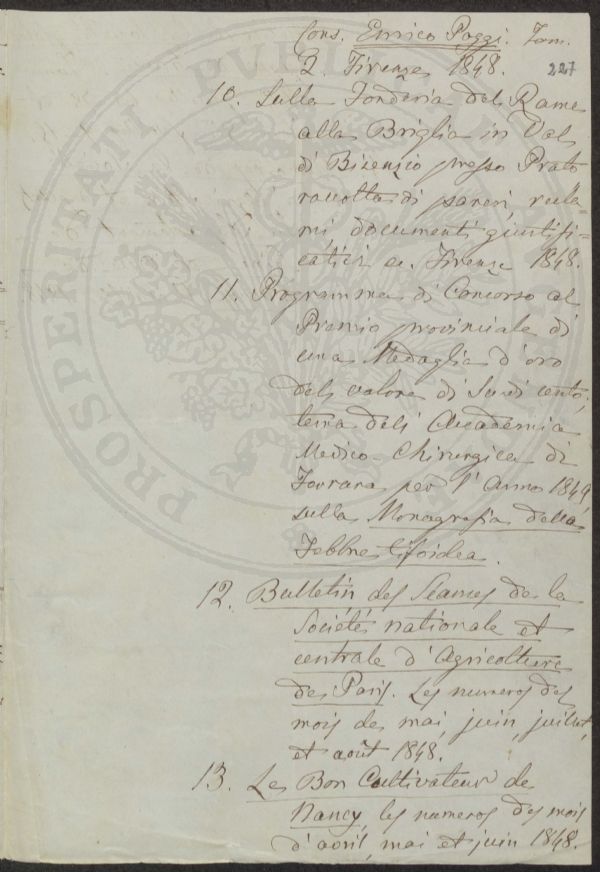 Cons. Enrico Poggi. Tom.
2. Firenze 1848.
227
10. Sulla Fonderia del Rame
alla Briglia in Val
di Bizenzio presso Prato
raccolta di pareri, recla-
mi, documenti giustifi-
cativi ec. Firenze 1848.
11. Programma di Concorso al
Premio provinciale di
una Medaglia d'oro
del valore di Scudi cento,
dell' Accademia
Medico-Chirurgica di
Ferrara per l'Anno 1849,
sulla Monografia della
Febbre tifoidea.
12. Bulletin des Séances de la
Société nationale et
centrale d'Agricolture
de Paris. Les numeros des
mois de mai, juin, juillet,
et août 1848.
13. Le Bon Cultivateur de
Nancy, les numeros des mois
d'avril, mai et juin 1848.
PROSPERITATI